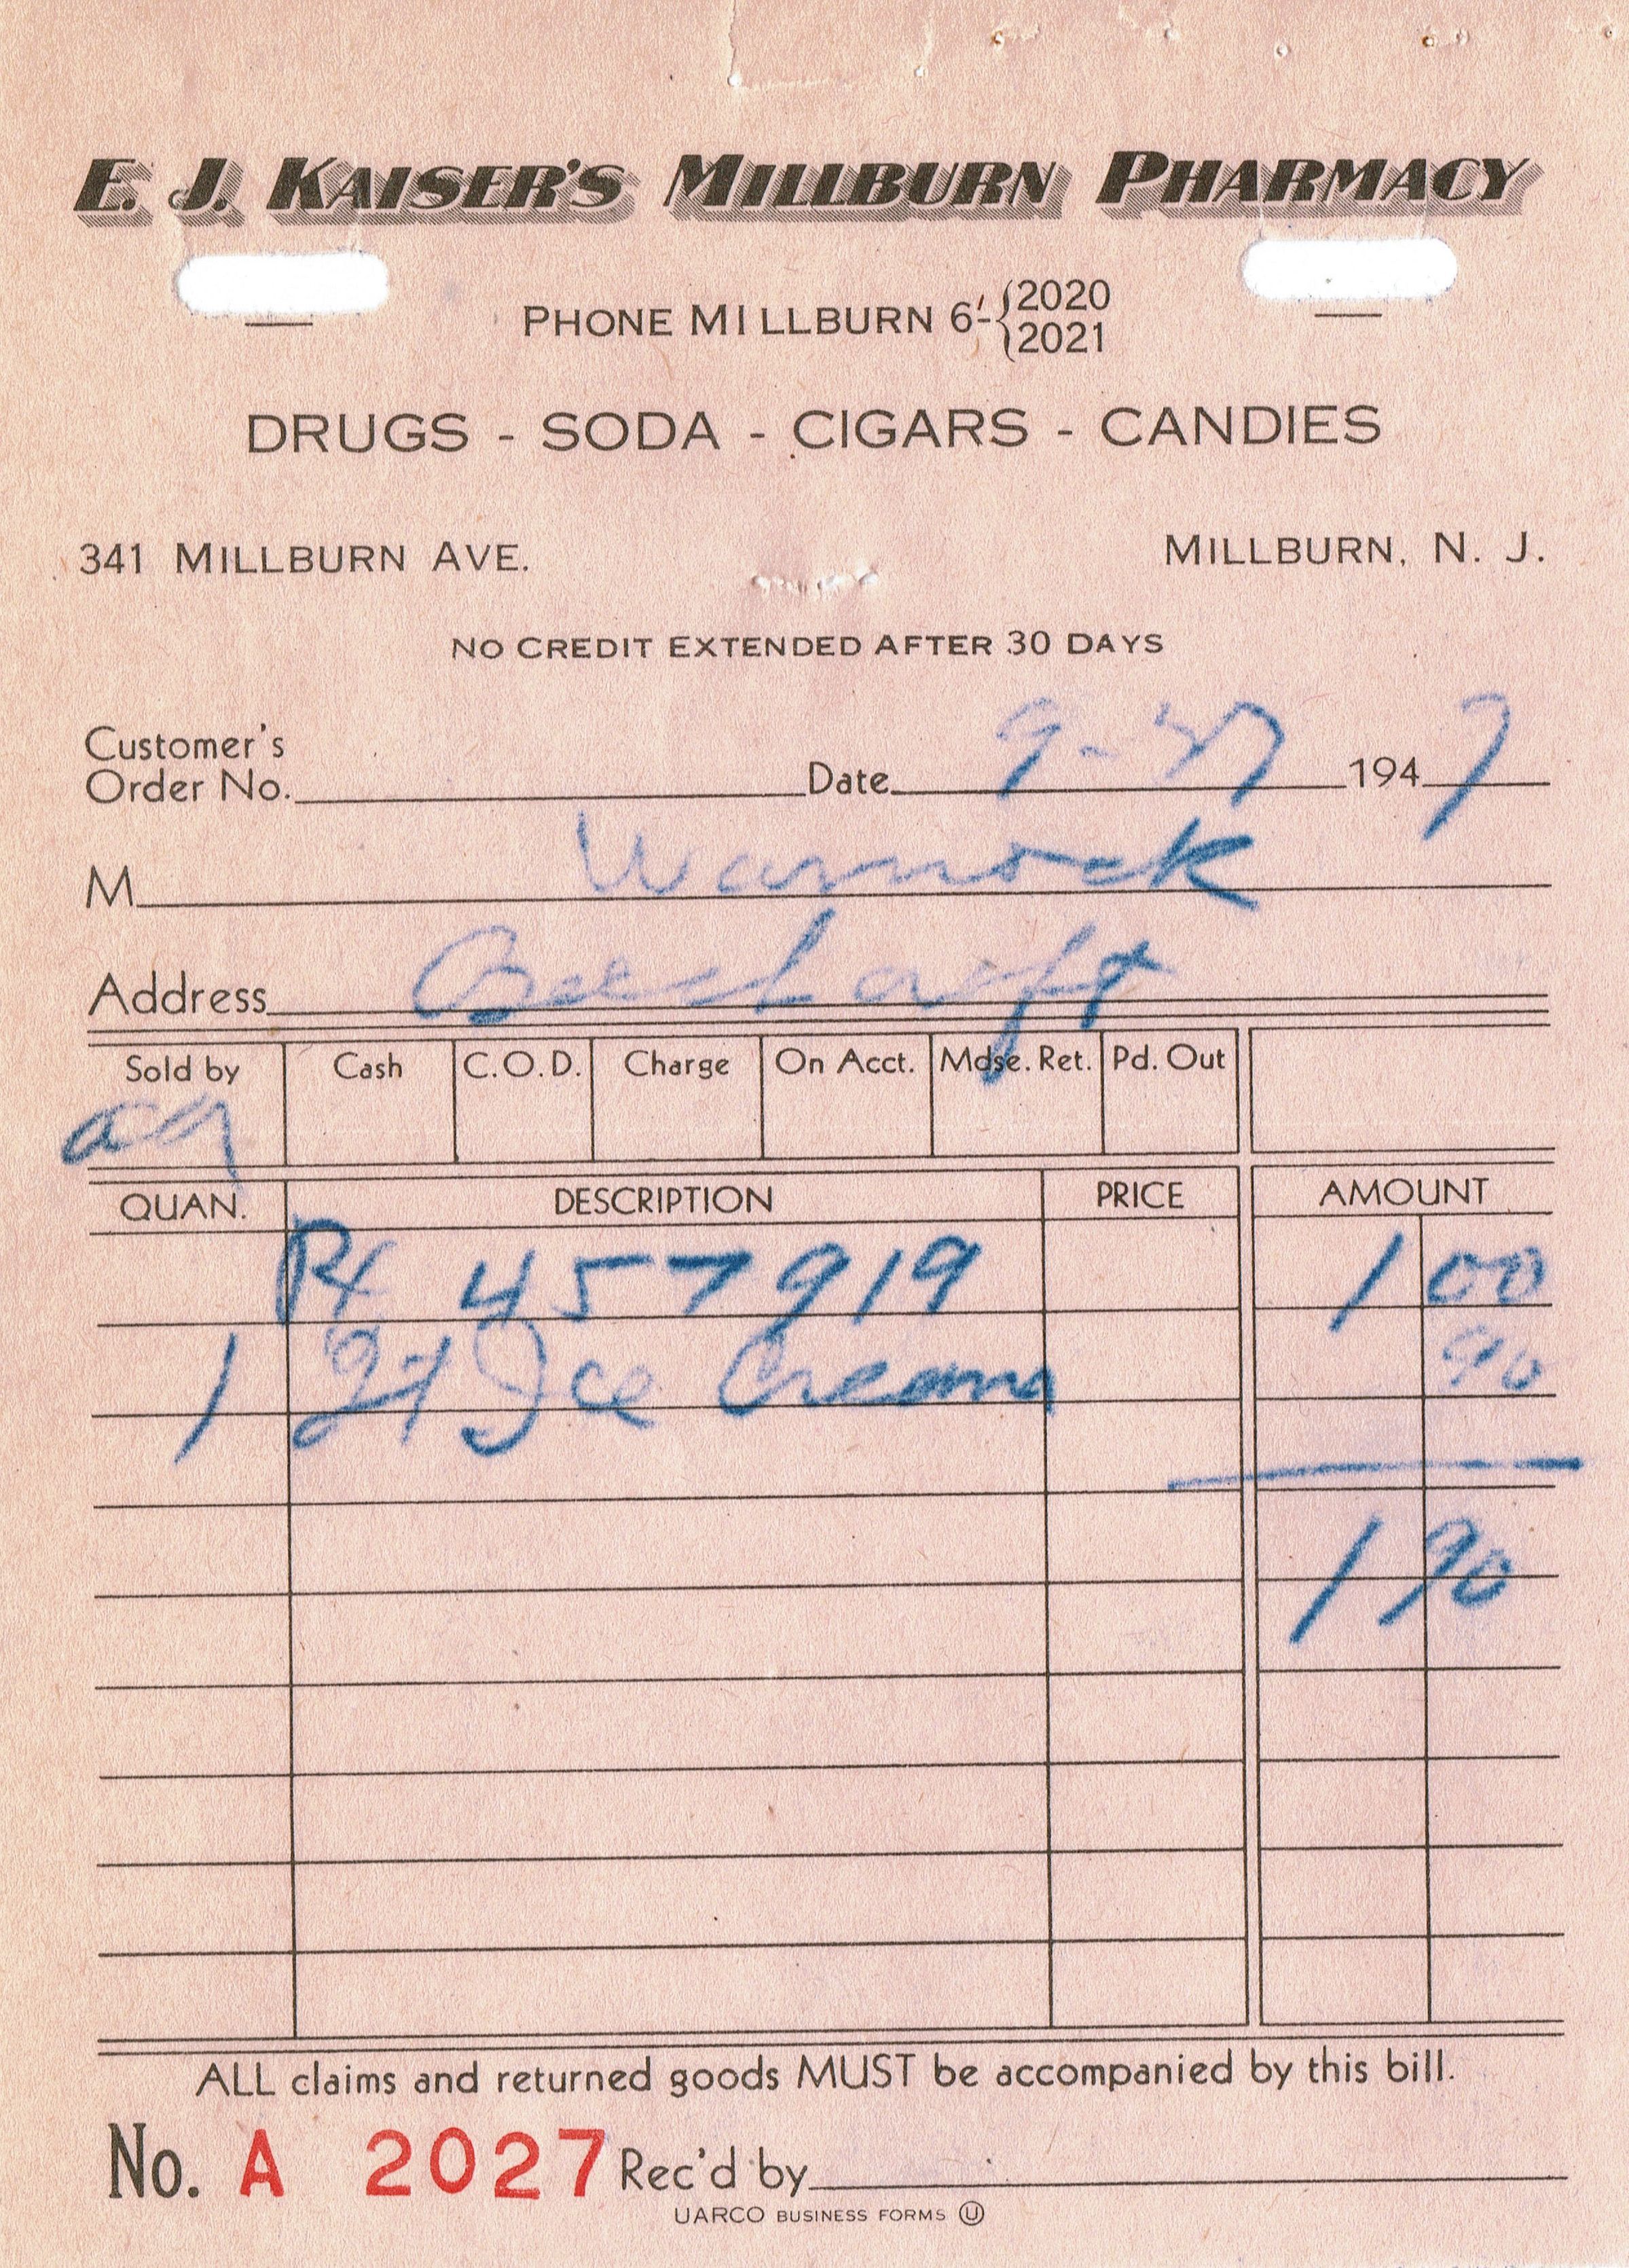 E. J. KAISER'S MILLBURN PHARMACY
PHONE MILLBURN 6-{2020
2021
DRUGS - SODA - CIGARS - CANDIES
341 MILLBURN AVE. MILLBURN, N. J.
NO CREDIT EXTENDED AFTER 30 DAYS
Customer's
Order No. Date 9-27 1947
M Warnock
Address Beechcroft
Sold by Cash C.O.D. Charge On Acct. Mdse. Ret. Pd. Out
QUAN. DESCRIPTION PRICE AMOUNT
Rx 457919 1 00
1 Ice Cream 90
1 90
ALL claims and returned goods MUST be accompanied by this bill.
No. A 2027 Rec'd by
UARCO BUSINESS FORMS U